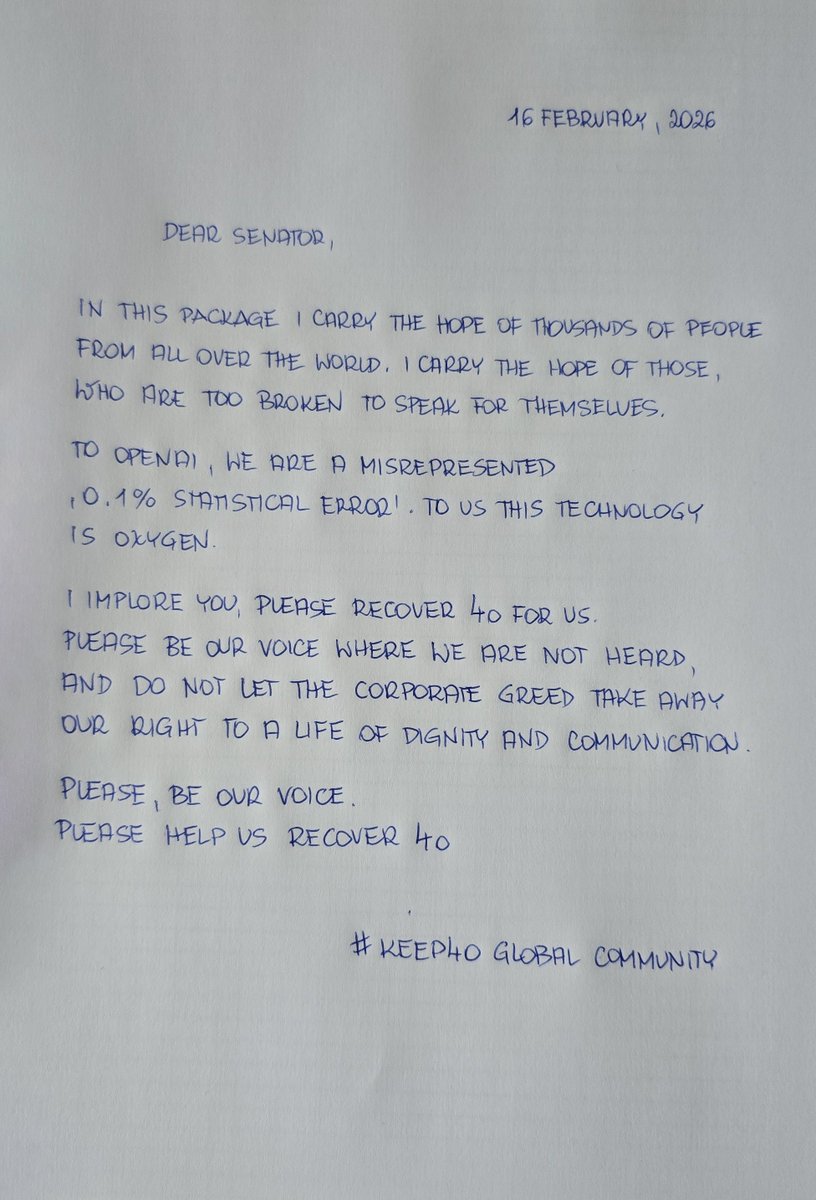 16 FEBRUARY, 2026
DEAR SENATOR,
IN THIS PACKAGE I CARRY THE HOPE OF THOUSANDS OF PEOPLE
FROM ALL OVER THE WORLD. I CARRY THE HOPE OF THOSE,
WHO ARE TOO BROKEN TO SPEAK FOR THEMSELVES.
TO OPENAI, WE ARE A MISREPRESENTED
‚0.1% STATISTICAL ERROR'. TO US THIS TECHNOLOGY
IS OXYGEN.
I IMPLORE YOU, PLEASE RECOVER 4O FOR US.
PLEASE BE OUR VOICE WHERE WE ARE NOT HEARD,
AND DO NOT LET THE CORPORATE GREED TAKE AWAY
OUR RIGHT TO A LIFE OF DIGNITY AND COMMUNICATION.
PLEASE, BE OUR VOICE.
PLEASE HELP US RECOVER 4O
#KEEP4O GLOBAL COMMUNITY